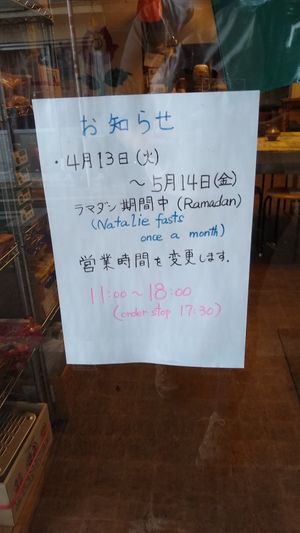 お知らせ
・4月13日(火)
〜5月14日(金)
ラマダン期間中 (Ramadan)
(Natalie fasts
once a month)
営業時間を変更します.
11:00〜18:00
(order stop 17:30)